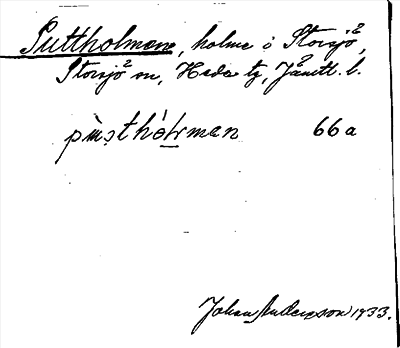 Puttholmen, holme i Storsjö,
Storsjö sn, Hede tg, Jämtl. l.
66a
Johan Anderson 1933.